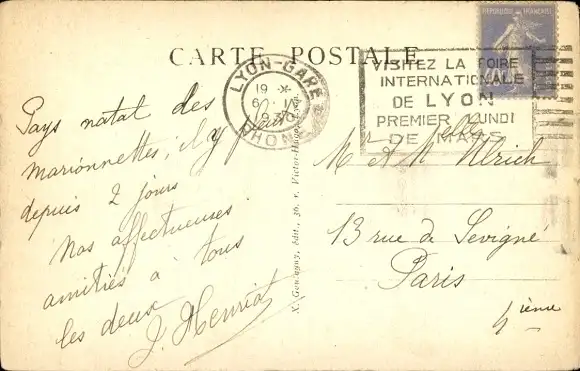 CARTE POSTALE
REPUBLIQUE FRANÇAISE
LYON-GARE
19 *
6 - 1
RHONE
VISITEZ LA FOIRE
INTERNATIONALE
DE LYON
PREMIER LUNDI
DE MARS
Pays natal des
marionnettes, il y pleut
depuis 2 jours
Nos affectueuses
amitiés à tous
les deux
J. Henriot
Mr & Melle Ulrich
13 rue de Sévigné
Paris
4ième
édit., 36, r. Victor-Hugo, Lyon